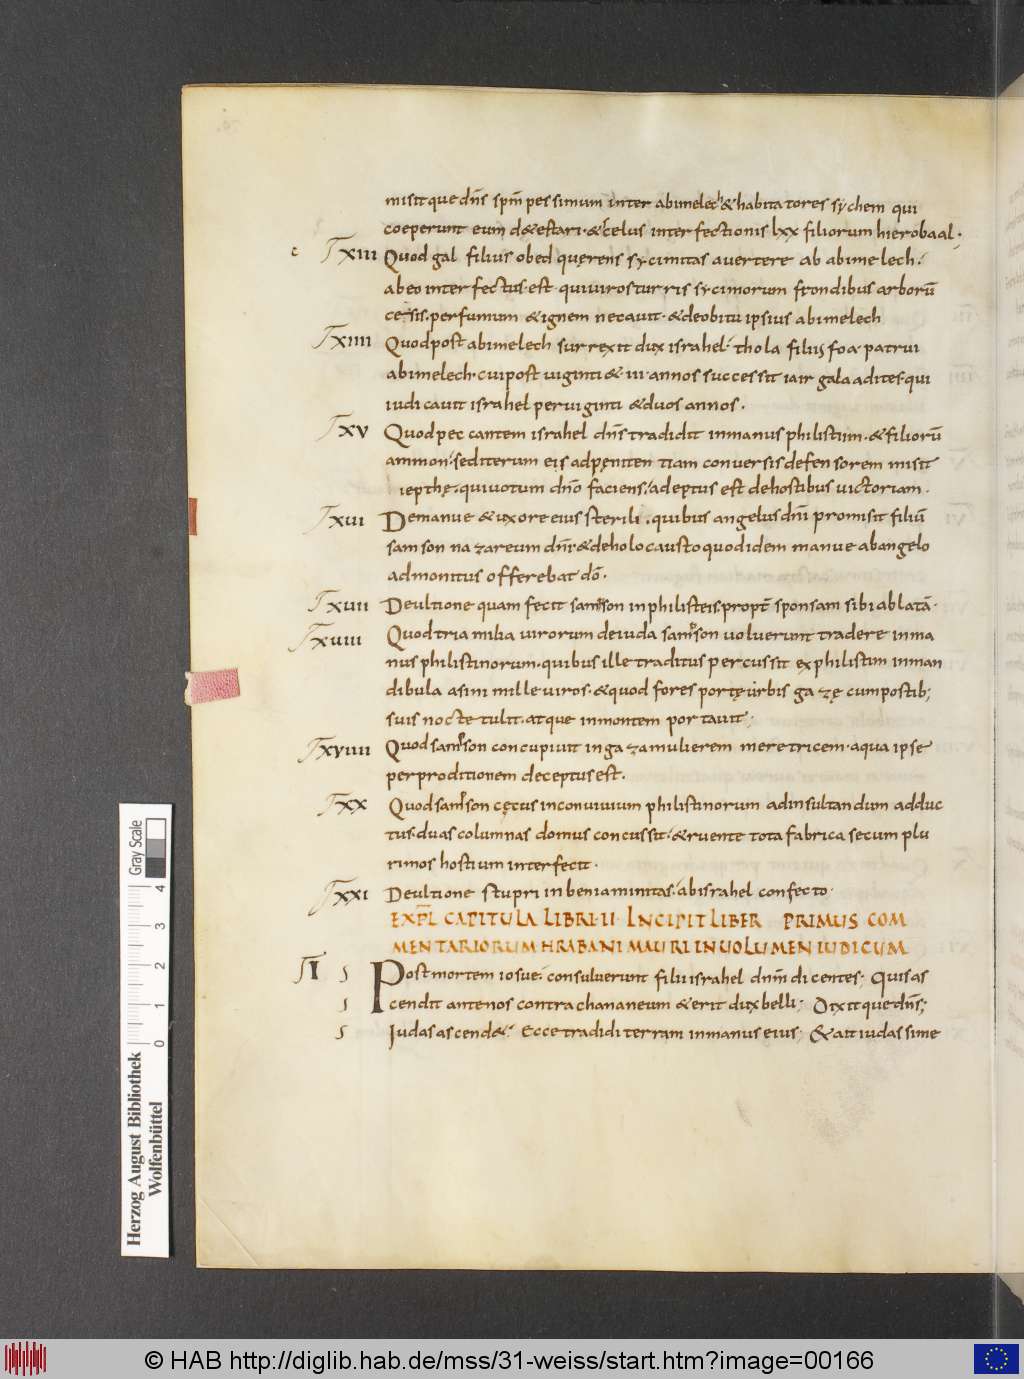 misitque dn̄s sp̄m pessimum inter abimelech & habitatores sychem qui
coeperunt eum d&estari · & scelus interfectionis lxx filiorum hierobaal ·
c XIII Quod gal filius obed quęrens sycimitas auertere ab abimelech ·
ab eo interfectus · est · qui uiros turris sycimorum frondibus arborū
cesis · per fumum & ignem necauit · & de obitu ipsius abimelech
XIIII Quod post abimelech surrexit dux israhel · thola filius foa patrui
abimelech · cui post uiginti & iii · annos successit iair galaadites · qui
iudicauit israhel per uiginti & duos annos .
XV Quod peccantem israhel dn̄s tradidit in manus philistiim · & filiorū
ammon · sed iterum eis ad pęnitentiam conuersis defensorem misit
iepthę · qui uotum dn̄o faciens · adeptus est de hostibus uictoriam .
XVI De manue & uxore eius sterili . quibus angelus dn̄i promisit filiū
samson nazareum dn̄i · & de holocausto quod idem manue ab angelo
admonitus offerebat dō .
XVII De ultione quam fecit samson in philisteis · propt̄ sponsam sibi ablatā ·
XVIII Quod tria milia uirorum de iuda sampson uoluerunt tradere in ma
nus philistinorum · quibus ille traditus percussit ex philistim in man
dibula asini mille uiros · & quod fores portę urbis gazę cum postib;
suis nocte tulit · atque in montem portauit ;
XVIIII Quod sampson concupiuit in gaza mulierem meretricem · a qua ipse
per proditionem deceptus est .
XX Quod sampson cęcus in conuiuium philistinorum ad insultandum adduc
tus · duas columnas domus concussit · & ruente tota fabrica secum plu
rimos hostium interfecit .
XXI De ultione stupri in beniaminitas · ab israhel confecto ·
EXPL̄ CAPITULA LIBRI · II · INCIPIT LIBER PRIMUS COM
MENTARIORUM HRABANI MAURI IN UOLUMEN IUDICUM
I S Post mortem iosue · consuluerunt filii israhel dnm̄ dicentes · Quis as
S cendit ante nos contra chananeum & erit dux belli ; Dixitque dn̄s ;
S Iudas ascend& · Ecce tradidi terram in manus eius ; & ait iudas sime
Gray Scale
0 1 2 3 4
Herzog August Bibliothek
Wolfenbüttel
© HAB http://diglib.hab.de/mss/31-weiss/start.htm?image=00166